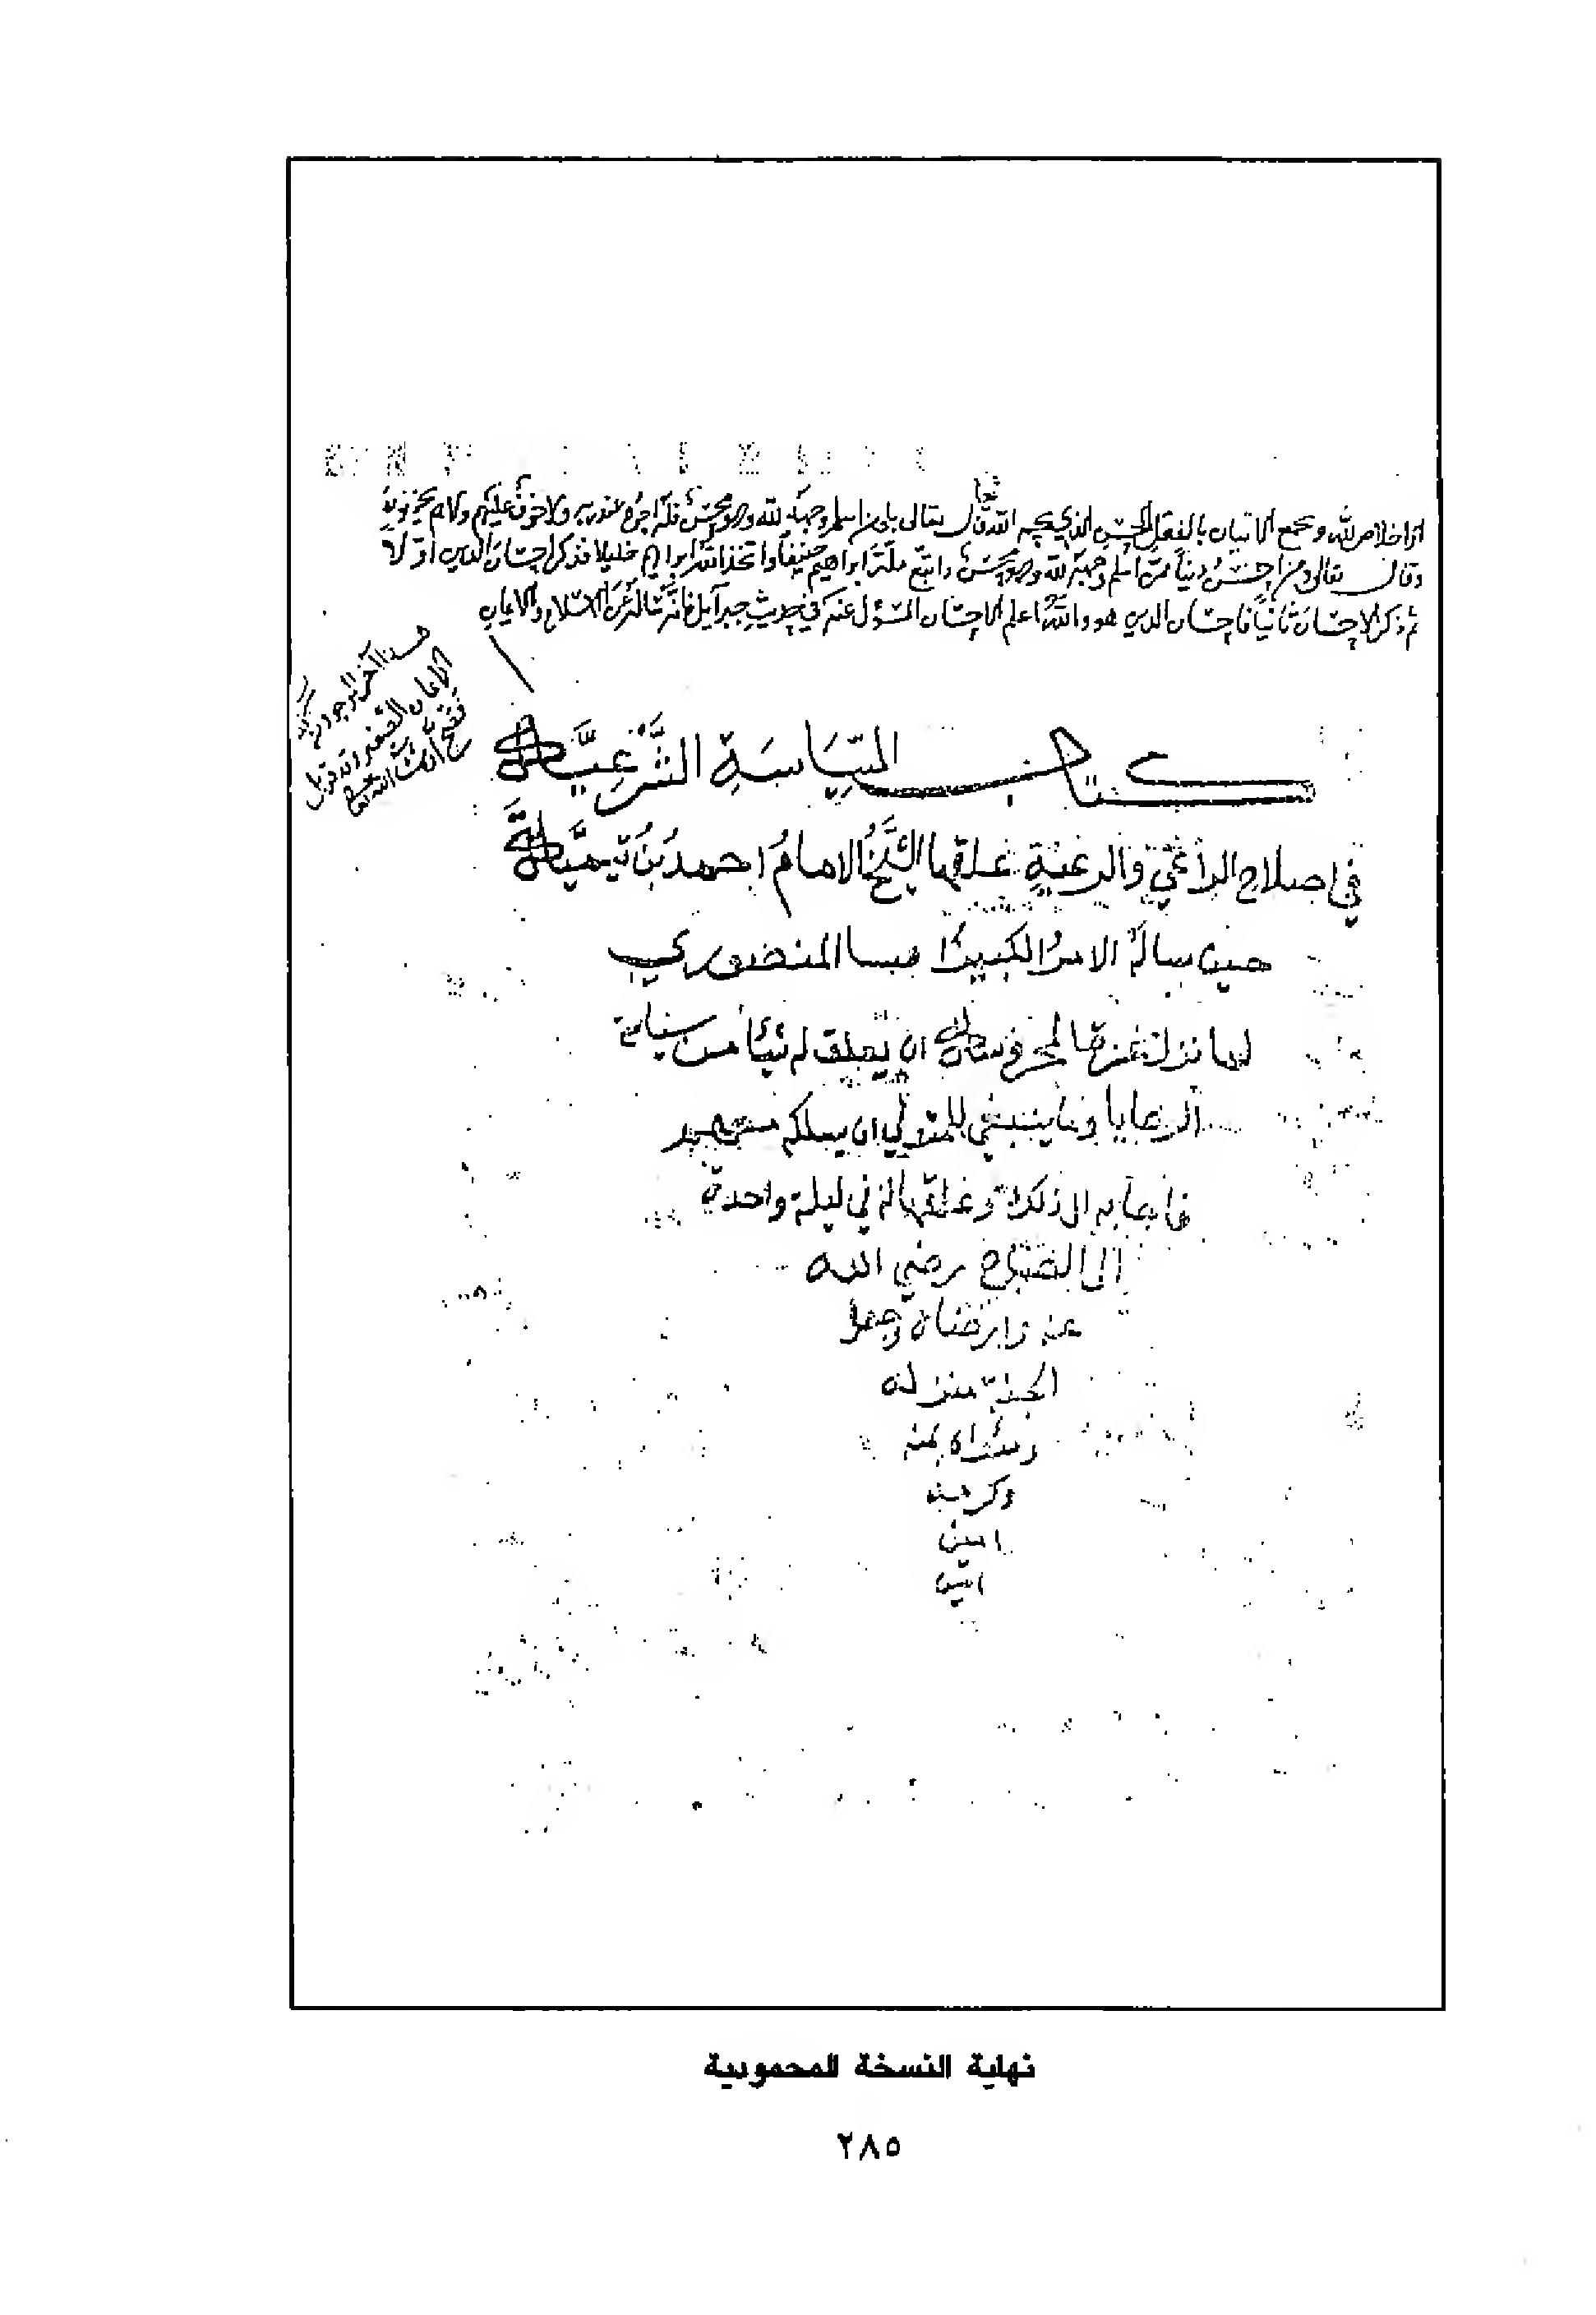 الاخلاص لله ويجمع الاتيان بالفعل الحسن الذي يحبه الله تعالى قال تعالى بلى من اسلم وجهه لله وهو محسن فله اجره عند ربه ولا خوف عليهم ولا هم يحزنون
وقال تعالى ومن احسن دينا ممن اسلم وجهه لله وهو محسن واتبع ملة ابراهيم حنيفا واتخذ الله ابراهيم خليلا فذكر احسان الدين اولا
ثم ذكر الاحسان ثانيا فاحسان الدين هو والله اعلم الاحسان المسئول عنه في حديث جبرآيل فانه سأله عن الاسلام والايمان
هذا آخر الموجود
الايمان
كتاب السِّيَاسَةِ الشَّرْعِيَّة
في اصلاح الراعي والرعية علقها الشَّيْخُ الامامُ احمدُ بنُ تَيميَّة
حين سأله الامير الكبير اقبسا المنصوري
لما نزل غزة المحروسة ان يعلق له شيئا من سياسة
الرعايا وما ينبغي للمتولي ان يسلكه
فاجابه الى ذلك وعلقها له في ليلة واحدة
الى الصباح رضي الله
عنه وارضاه وجعل
الجنة منزله
ومثواه بمنه
وكرمه
امين
امين
نهاية النسخة المحمودية
٢٨٥